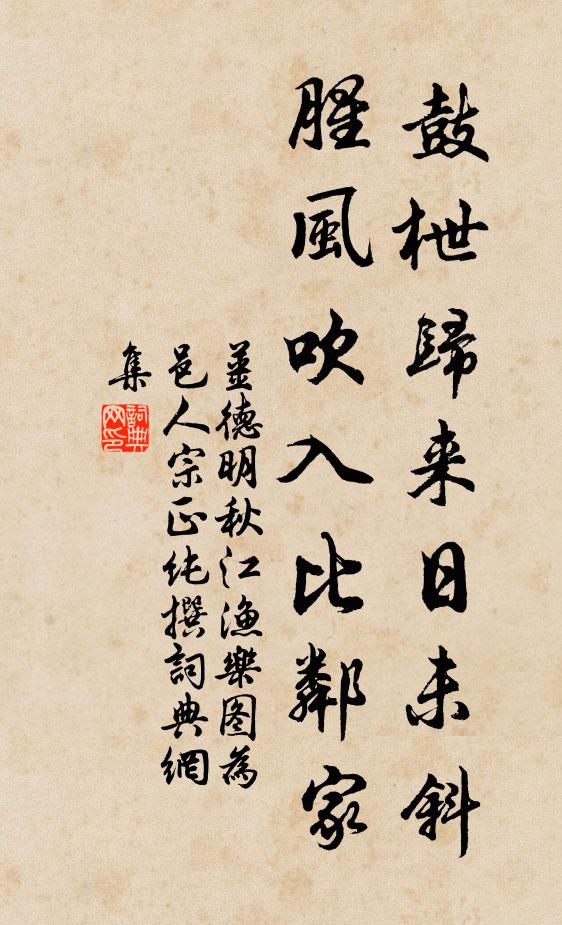 鼓枻歸来日未斜
腥風吹入比鄰家
姜德明秋江漁樂图為
邑人宗正純撰詞典網
集
詞典网印